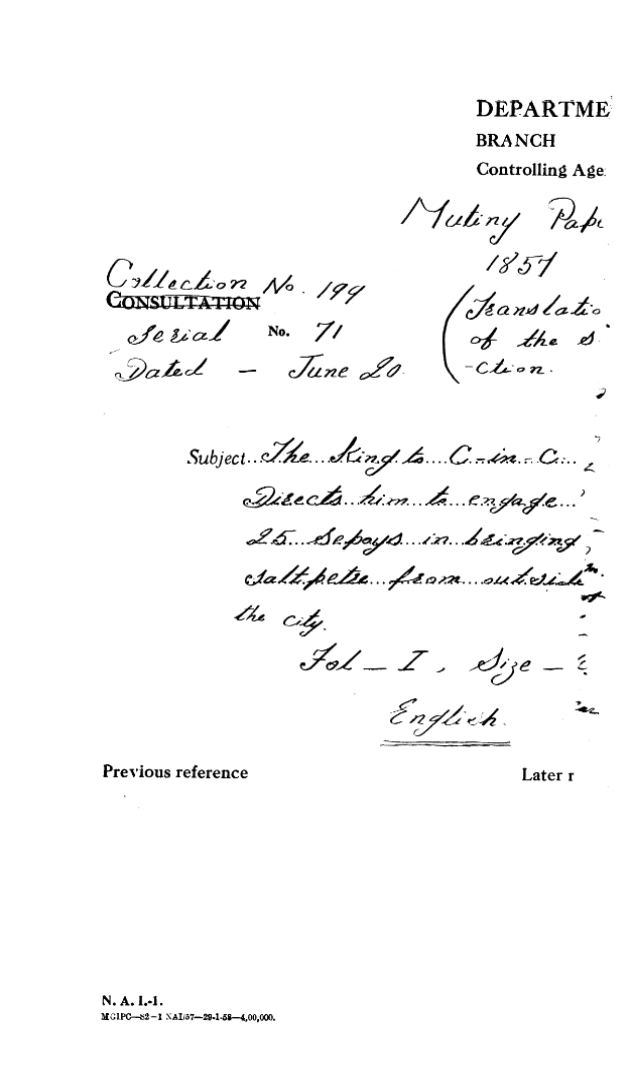 DEPARTME
BRANCH
Controlling Age
Mutiny Pape
1857
Collection No. 194
CONSULTATION
Serial No. 71
(Translatio
of the S
-ction.
Dated - June 20.
Subject...The...King to....C.-in.-C...
Directs...him...to...engage...
25...Sepoys...in...bringing
saltpetre...from...outside
the city.
Fol - I, Size -
English.
Previous reference
Later r
N. A. I.-1.
MGIPC—82—1 NAI/57—29-1-58—4,00,000.